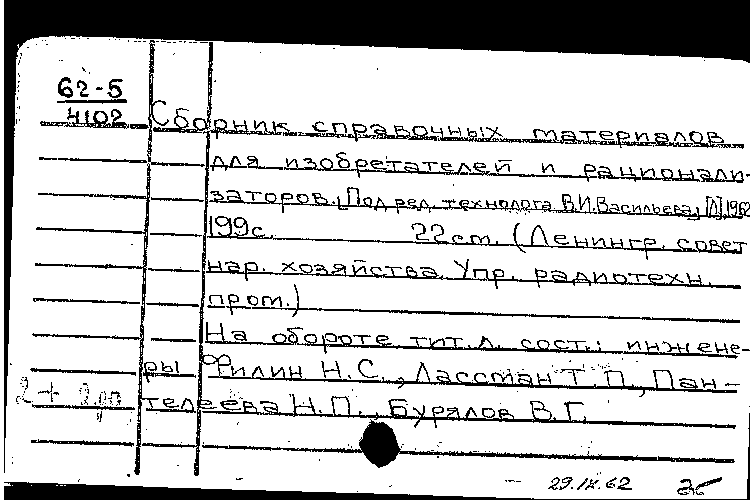 62-5
4102
Сборник справочных материалов
для изобретателей и рационали-
заторов. Под ред. технолога В.И.Васильева, [Л] 1962
199с. 22см. (Ленингр. совет
нар. хозяйства. Упр. радиотехн.
пром.)
На обороте тит.л. сост.: инжене-
ры Филин Н.С., Лассман Т.П., Пан-
телеева Н.П., Бурялов В.Г.
2 +
29.IX.62